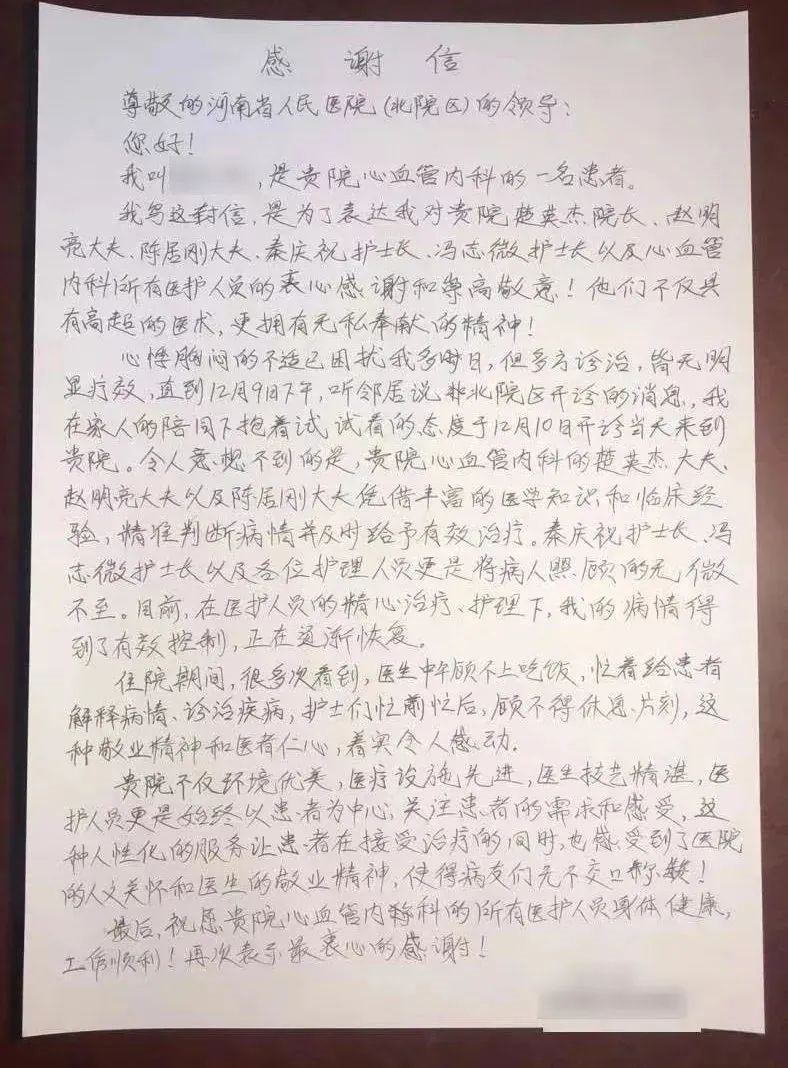 感谢信
尊敬的河南省人民医院(北院区)的领导:
您好!
我叫 ,是贵院心血管内科的一名患者。
我写这封信,是为了表达我对贵院楚英杰院长、赵明
亮大夫、陈居刚大夫、秦庆祝护士长、冯志微护士长以及心血管
内科所有医护人员的衷心感谢和崇高敬意!他们不仅具
有高超的医术,更拥有无私奉献的精神!
心悸胸闷的不适已困扰我多时日,但多方诊治,皆无明
显疗效,直到12月9日下午,听邻居说 北院区开诊的消息,我
在家人的陪同下抱着试试看的态度于12月10日开诊当天来到
贵院。令人意想不到的是,贵院心血管内科的楚英杰大夫、
赵明亮大夫以及陈居刚大夫凭借丰富的医学知识和临床经
验,精准判断病情并及时给予有效治疗。秦庆祝护士长、冯
志微护士长以及各位护理人员更是将病人照顾的无微
不至。目前,在医护人员的精心治疗、护理下,我的病情得
到了有效控制,正在逐渐恢复。
住院期间,很多次看到,医生中午顾不上吃饭,忙着给患者
解释病情、诊治疾病,护士们忙前忙后,顾不得休息片刻,这
种敬业精神和医者仁心,着实令人感动.
贵院不仅环境优美,医疗设施先进,医生技艺精湛,医
护人员更是始终以患者为中心,关注患者的需求和感受,这
种人性化的服务让患者在接受治疗的同时,也感受到了医院
的人文关怀和医生的敬业精神,使得病友们无不交口称 !
最后,祝愿贵院心血管内 科的所有医护人员身体健康,
工作顺利!再次表示最衷心的感谢!